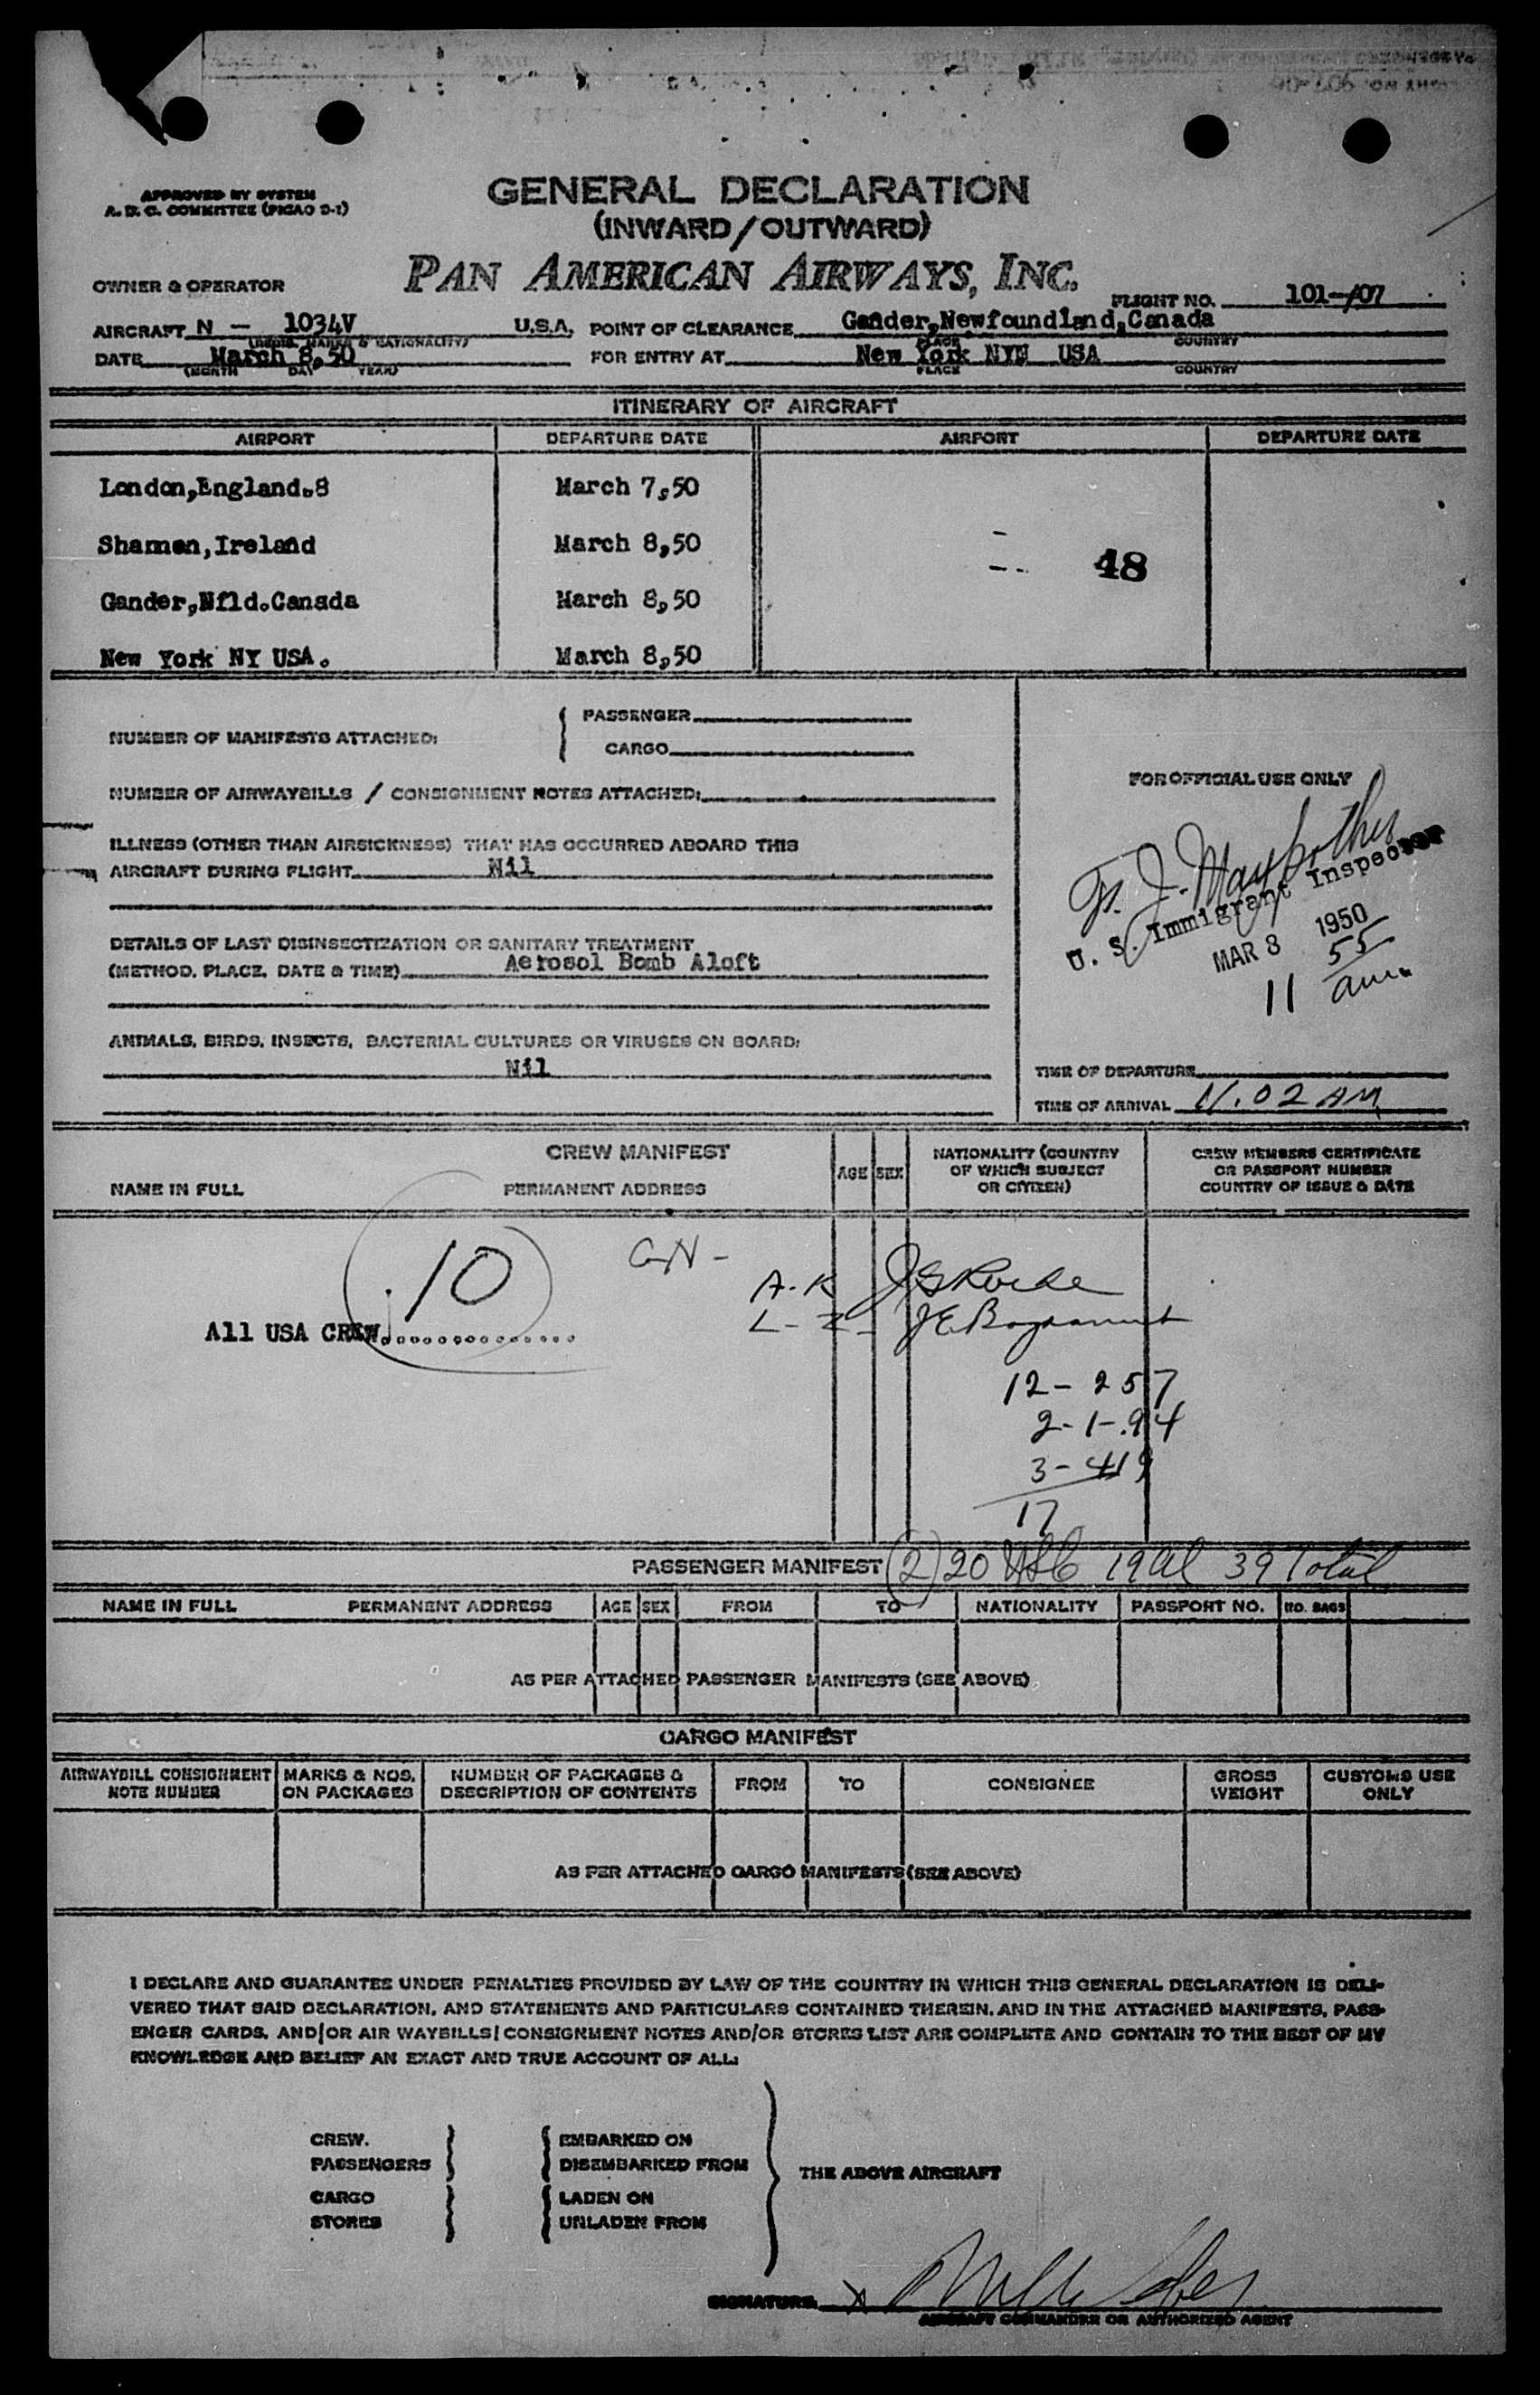 APPROVED BY SYSTEM
A. D. C. COMMITTEE (PICAO D-1)
GENERAL DECLARATION
(INWARD/OUTWARD)
OWNER & OPERATOR
PAN AMERICAN AIRWAYS, INC.
FLIGHT NO. 101-/07
AIRCRAFT N - 1034V U.S.A. POINT OF CLEARANCE Gander,Newfoundland,Canada
MARKS & NATIONALITY) PLACE COUNTRY
DATE March 8,50 FOR ENTRY AT New York NYU USA
(MONTH DAY YEAR) PLACE COUNTRY
ITINERARY OF AIRCRAFT
AIRPORT DEPARTURE DATE AIRPORT DEPARTURE DATE
London,England.8 March 7,50
Shannon,Ireland March 8,50
48
Gander,Nfld.Canada March 8,50
New York NY USA. March 8,50
NUMBER OF MANIFESTS ATTACHED:
PASSENGER
CARGO
NUMBER OF AIRWAYBILLS / CONSIGNMENT NOTES ATTACHED:
ILLNESS (OTHER THAN AIRSICKNESS) THAT HAS OCCURRED ABOARD THIS
AIRCRAFT DURING FLIGHT Nil
DETAILS OF LAST DISINSECTIZATION OR SANITARY TREATMENT
(METHOD, PLACE, DATE & TIME) Aerosol Bomb Aloft
ANIMALS, BIRDS, INSECTS, BACTERIAL CULTURES OR VIRUSES ON BOARD:
Nil
FOR OFFICIAL USE ONLY
U. S. Immigrant Inspector
MAR 8 1950
11 55 am.
TIME OF DEPARTURE
TIME OF ARRIVAL 11.02 AM
CREW MANIFEST
NAME IN FULL PERMANENT ADDRESS AGE SEX NATIONALITY (COUNTRY OF WHICH SUBJECT OR CITIZEN) CREW MEMBERS CERTIFICATE OR PASSPORT NUMBER COUNTRY OF ISSUE & DATE
10 G-N -
A-K
All USA CREW................
L-Z-
12- 257
2-1-.94
3- 419
17
PASSENGER MANIFEST (2) 20 USC 19 Al 39 Total
NAME IN FULL PERMANENT ADDRESS AGE SEX FROM TO NATIONALITY PASSPORT NO. NO. BAGS
AS PER ATTACHED PASSENGER MANIFESTS (SEE ABOVE)
CARGO MANIFEST
AIRWAYBILL CONSIGNMENT NOTE NUMBER MARKS & NOS. ON PACKAGES NUMBER OF PACKAGES & DESCRIPTION OF CONTENTS FROM TO CONSIGNEE GROSS WEIGHT CUSTOMS USE ONLY
AS PER ATTACHED CARGO MANIFESTS (SEE ABOVE)
I DECLARE AND GUARANTEE UNDER PENALTIES PROVIDED BY LAW OF THE COUNTRY IN WHICH THIS GENERAL DECLARATION IS DELI-
VERED THAT SAID DECLARATION, AND STATEMENTS AND PARTICULARS CONTAINED THEREIN, AND IN THE ATTACHED MANIFESTS, PASS-
ENGER CARDS, AND/OR AIR WAYBILLS/CONSIGNMENT NOTES AND/OR STORES LIST ARE COMPLETE AND CONTAIN TO THE BEST OF MY
KNOWLEDGE AND BELIEF AN EXACT AND TRUE ACCOUNT OF ALL:
CREW. EMBARKED ON
PASSENGERS DISEMBARKED FROM
THE ABOVE AIRCRAFT
CARGO LADEN ON
STORES UNLADEN FROM
SIGNATURE X
AIRCRAFT COMMANDER OR AUTHORIZED AGENT